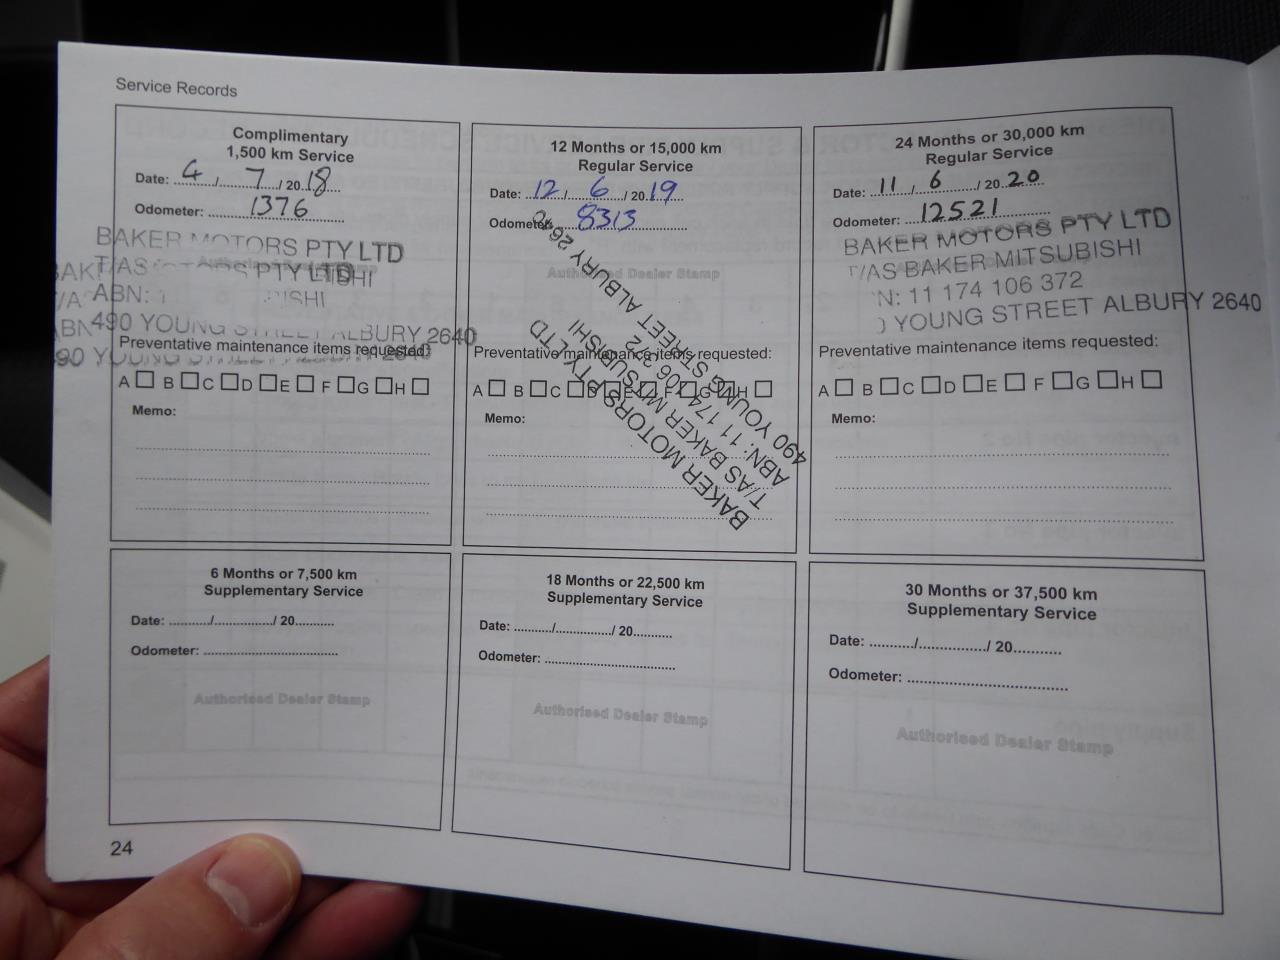 Service Records
Complimentary
1,500 km Service
Date: 4 / 7 / 20 18
Odometer: 1376
BAKER MOTORS PTY LTD
T/AS
ABN:
490 YOUNG STREET ALBURY 2640
Preventative maintenance items requested:
A B C D E F G H
Memo:
12 Months or 15,000 km
Regular Service
Date: 12 / 6 / 20 19
Odometer: 8313
Authorised Dealer Stamp
BAKER MOTORS PTY LTD
T/AS BAKER MITSUBISHI
ABN: 11 174 106
490 YOUNG STREET ALBURY
Preventative maintenance items requested:
A B C D E F G H
Memo:
24 Months or 30,000 km
Regular Service
Date: 11 / 6 / 20 20
Odometer: 12521
BAKER MOTORS PTY LTD
T/AS BAKER MITSUBISHI
N: 11 174 106 372
YOUNG STREET ALBURY 2640
Preventative maintenance items requested:
A B C D E F G H
Memo:
6 Months or 7,500 km
Supplementary Service
Date: ........../.............../ 20...........
Odometer: ......................................
Authorised Dealer Stamp
18 Months or 22,500 km
Supplementary Service
Date: ........../.............../ 20...........
Odometer: ......................................
Authorised Dealer Stamp
30 Months or 37,500 km
Supplementary Service
Date: ........../.............../ 20...........
Odometer: ......................................
Authorised Dealer Stamp
24